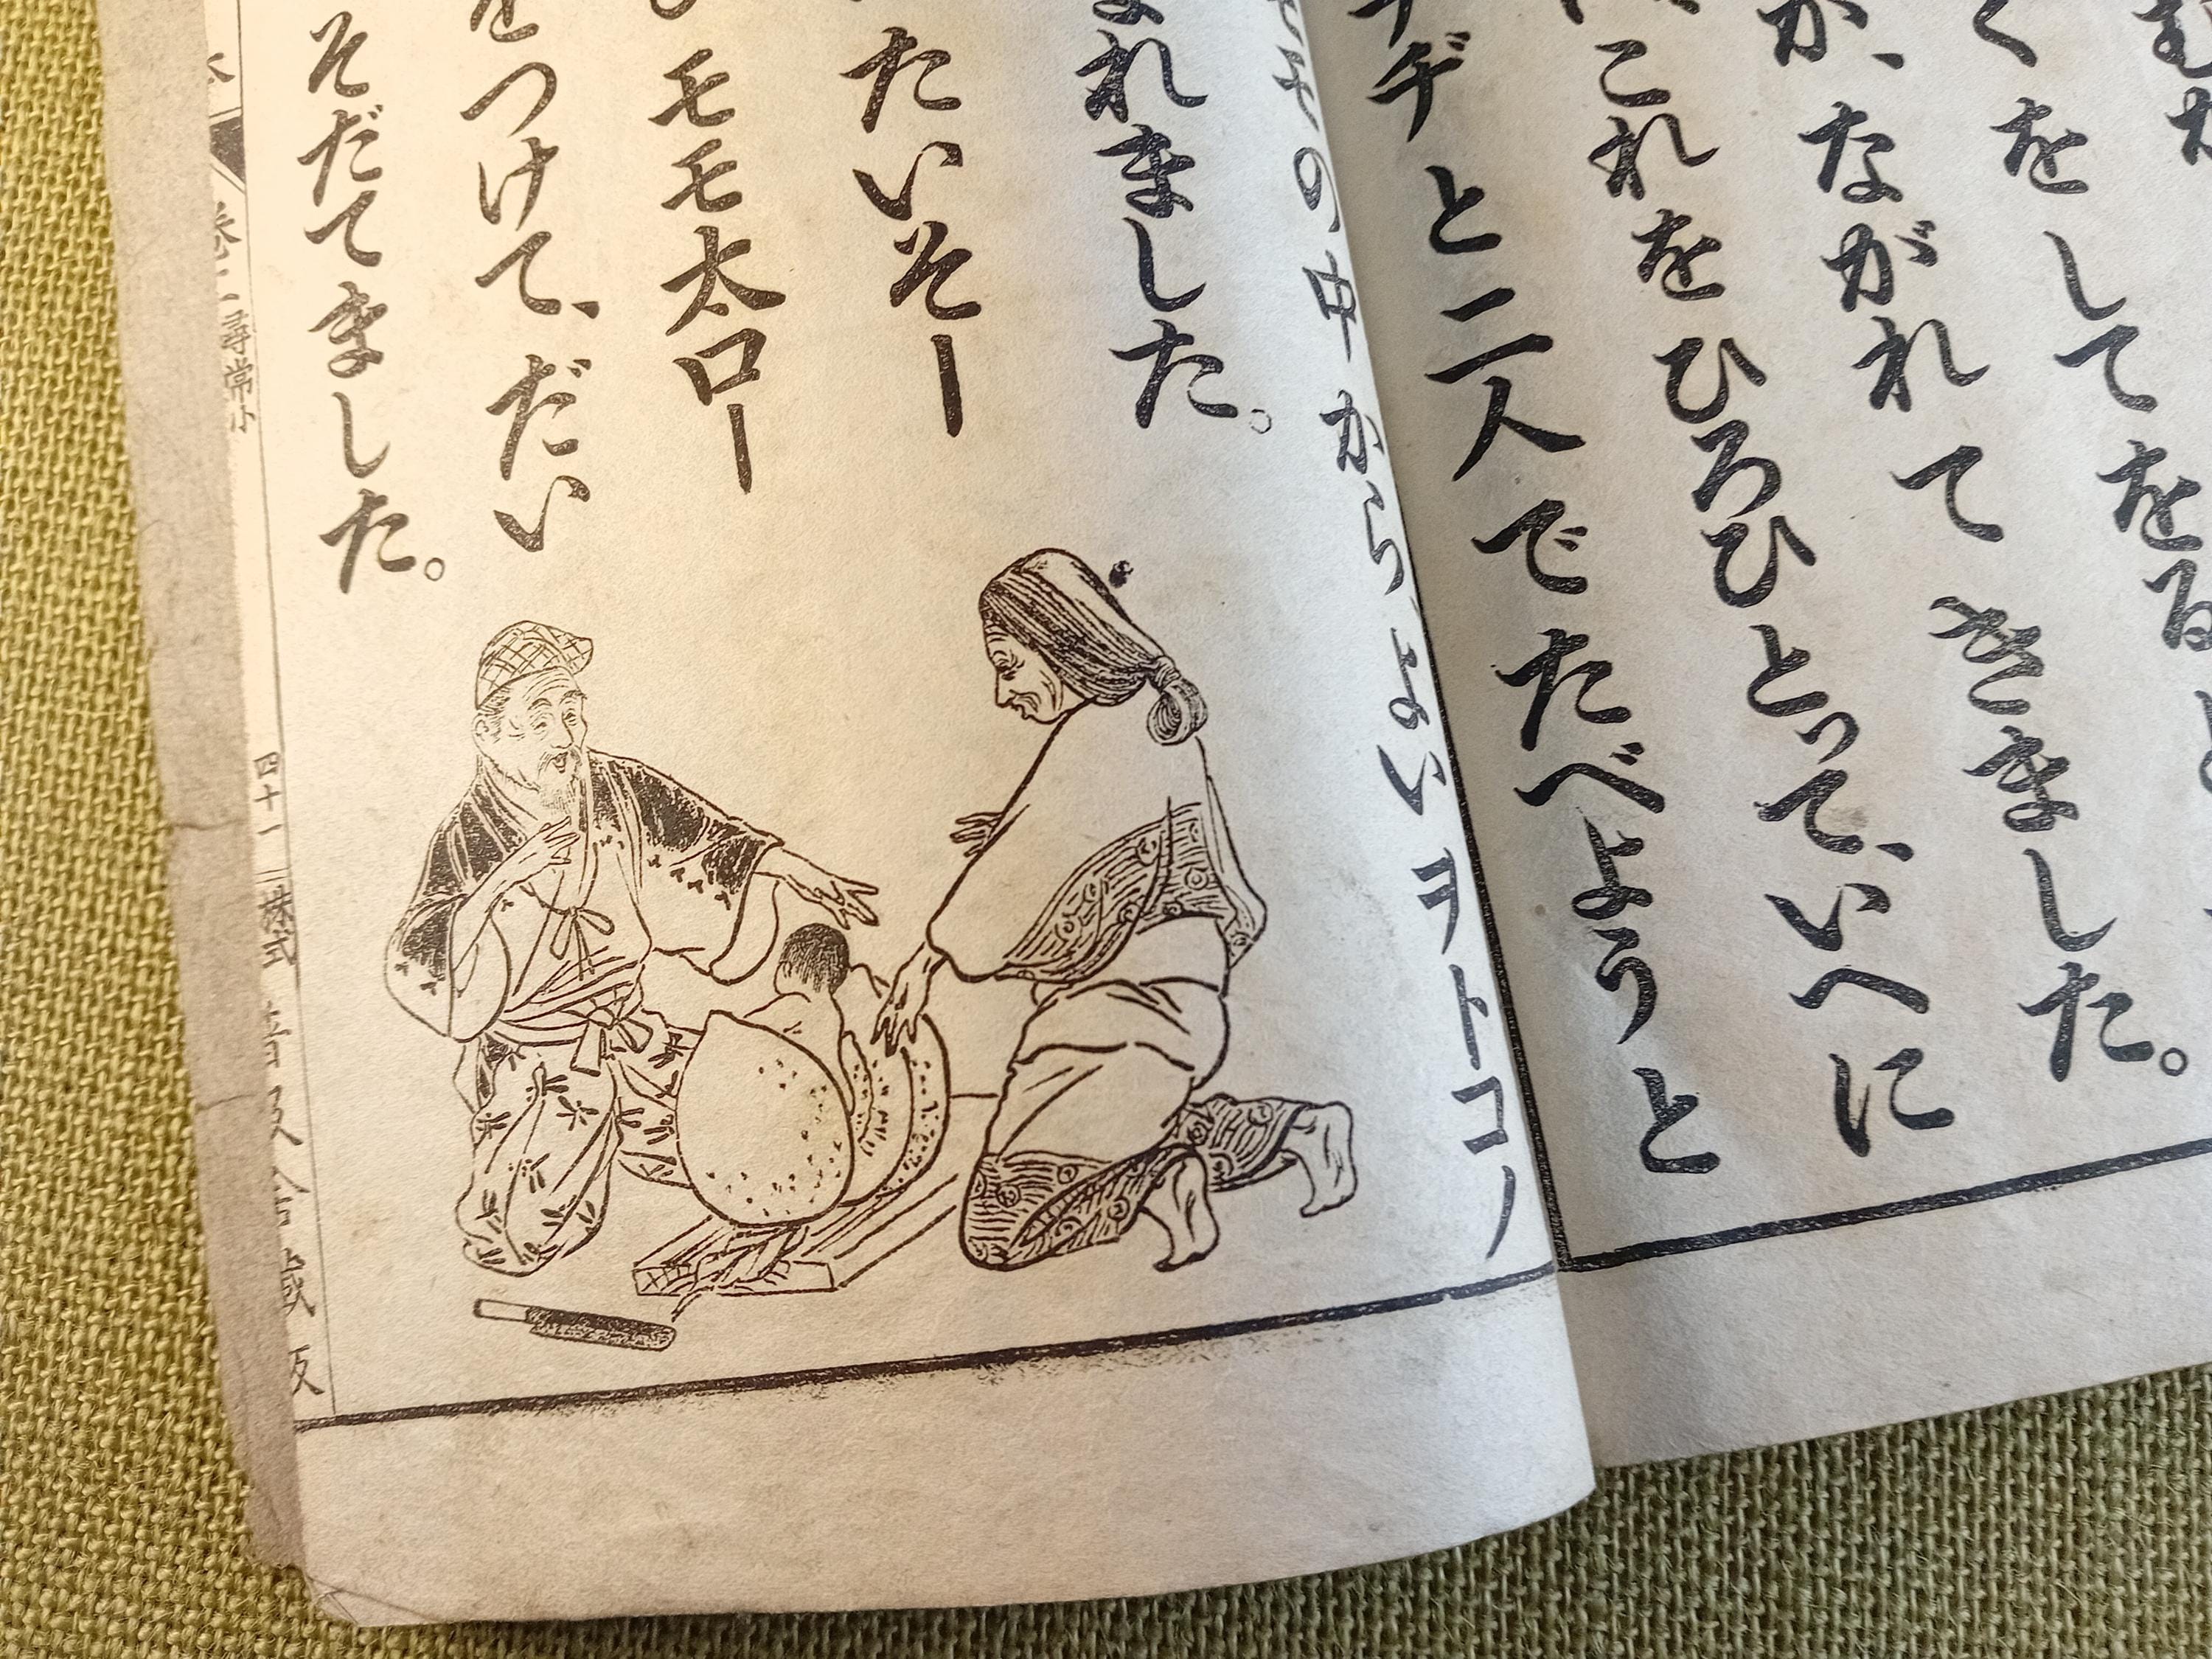 してをると
くをして
が、ながれてきました。
これをひろひとって、いへに
ヂヂと二人でたべようと
モモの中からよいヲトコノ
まれました。
たいそー
モモ太ロー
をつけて、だい
そだてました。
巻二 尋常小
四十一
株式